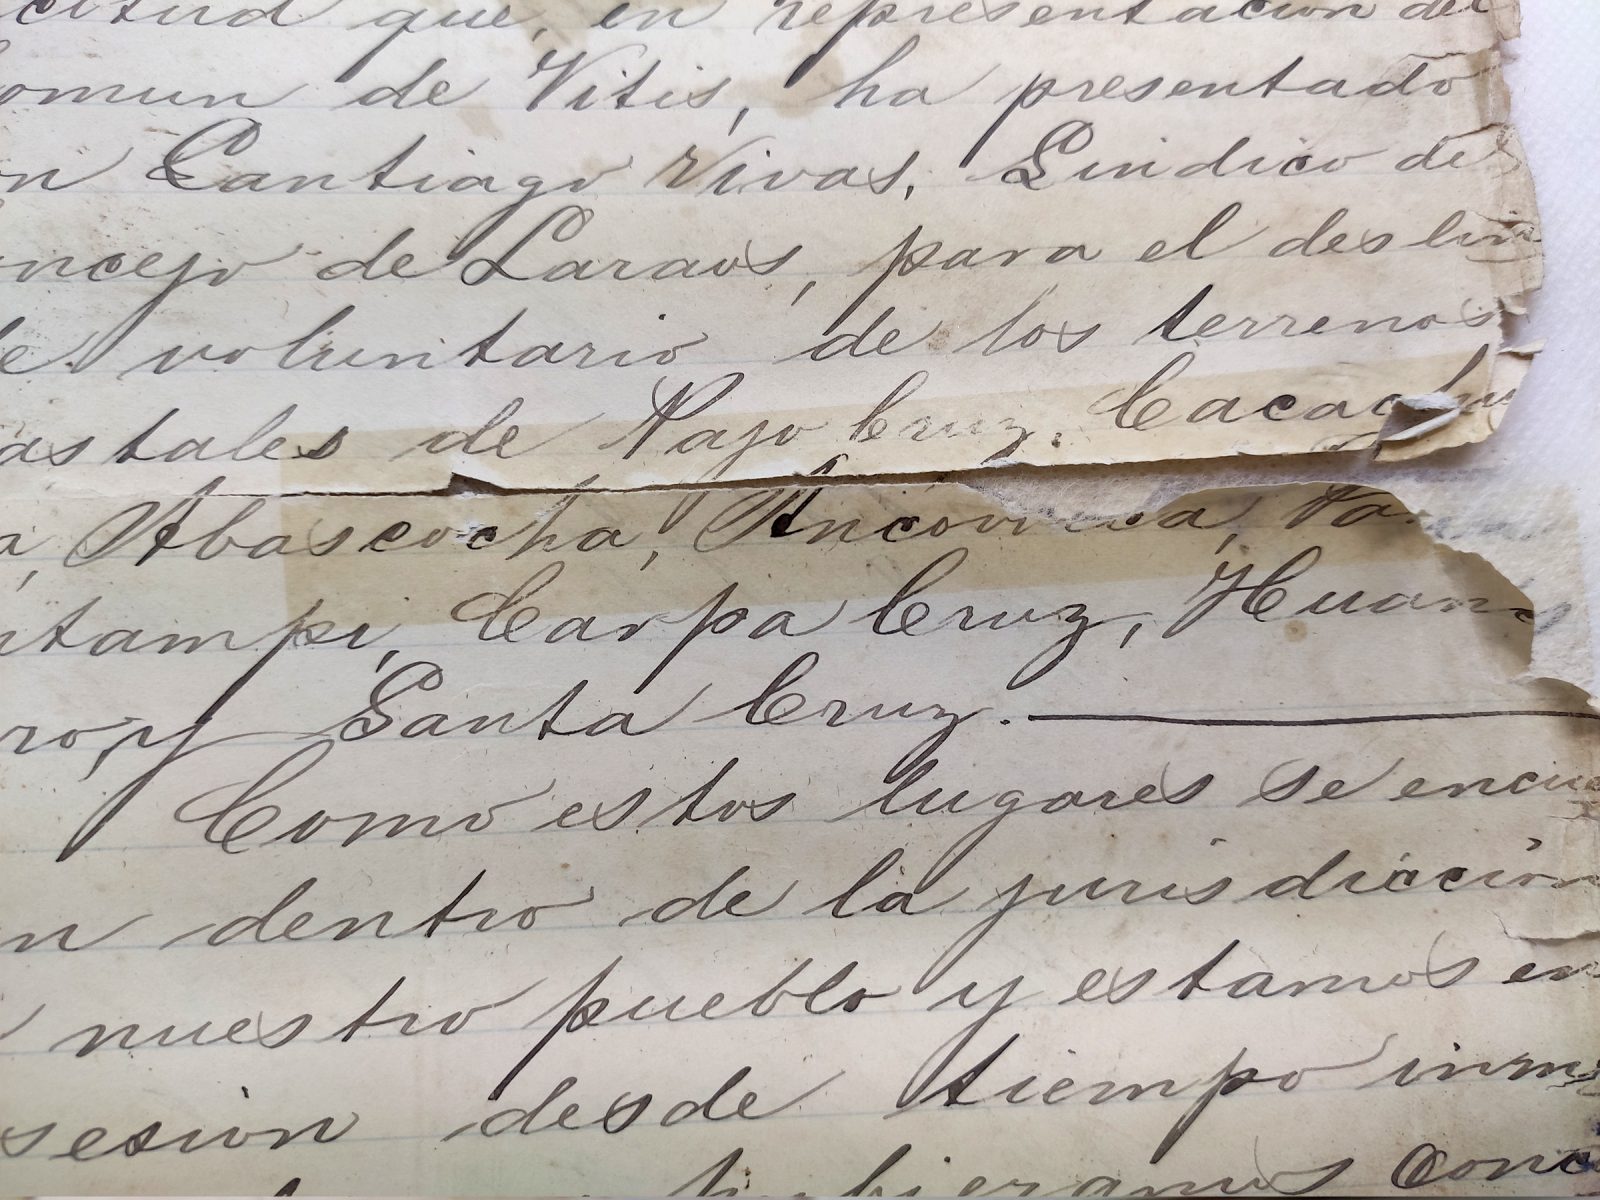 citud que, en representacion del
omun de Vitis, ha presentado
on Santiago Vivas, Sindico del
ncejo de Laraos, para el deslin
de voluntario de los terrenos
astales de Pajo Cruz,
a, Abascocha,
ntampi, Carpa Cruz, Huan
ro, y Santa Cruz.
Como estos lugares se encue
n dentro de la jurisdiccion
nuestro pueblo y estamos en
sesion desde tiempo inm
hubieramos conc